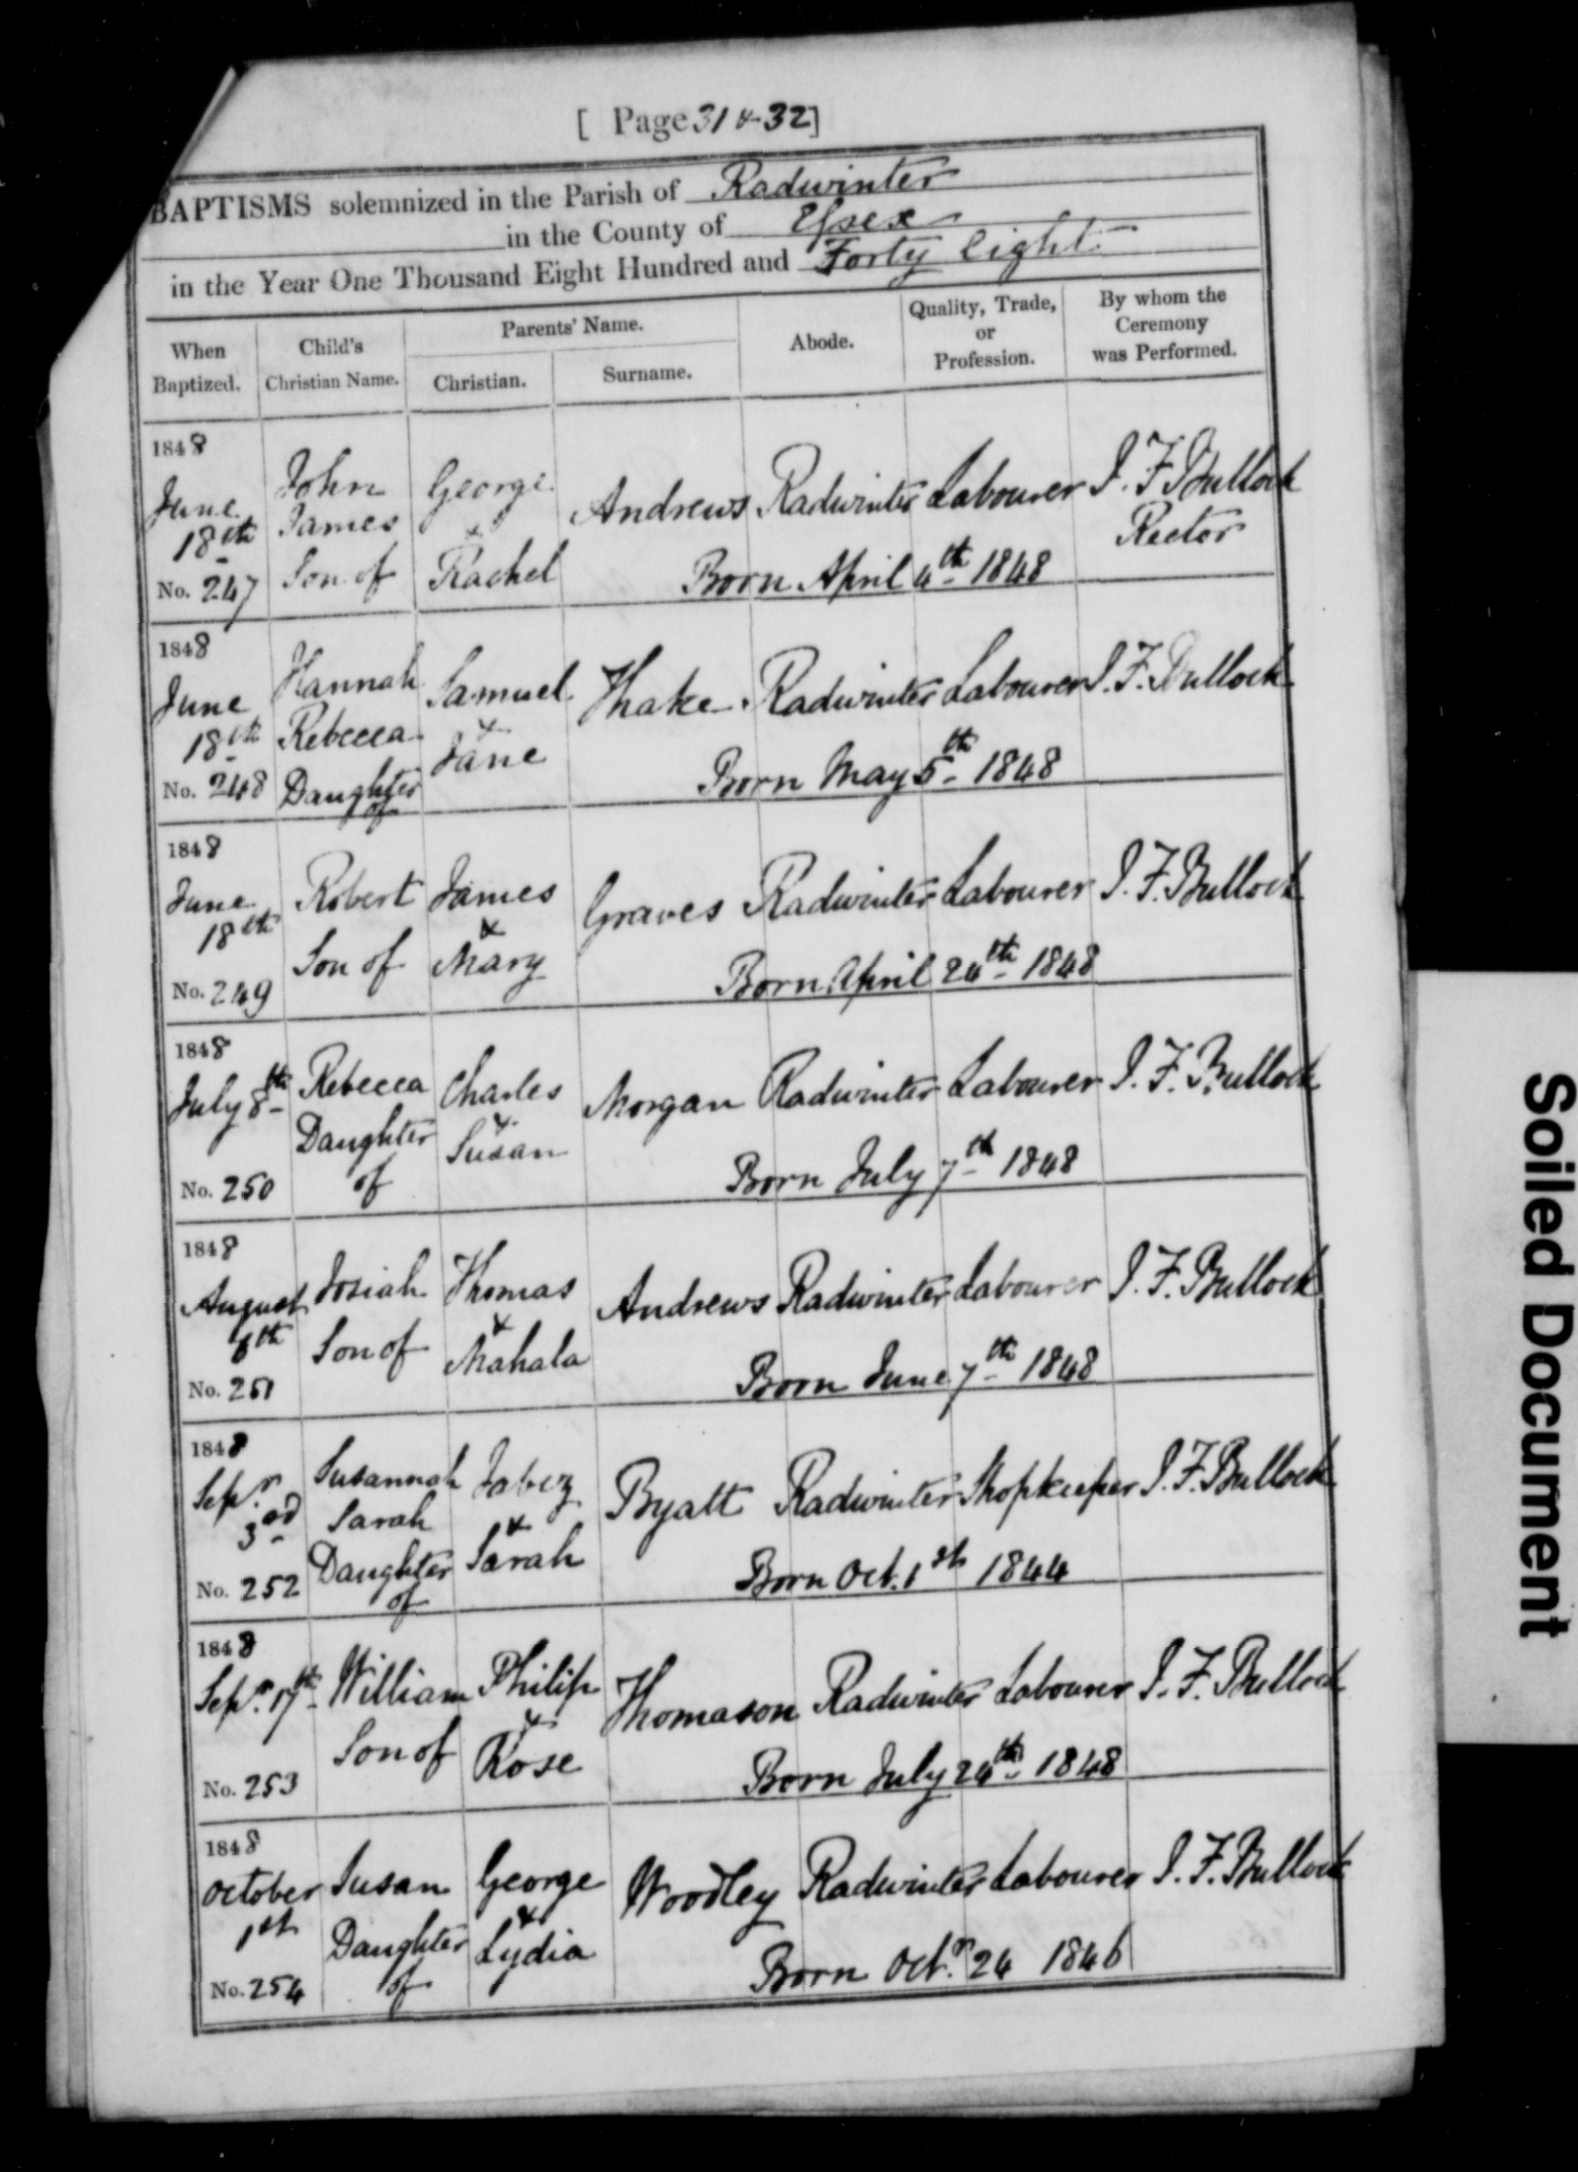 [ Page 31 & 32 ]
BAPTISMS solemnized in the Parish of Radwinter
in the County of Essex
in the Year One Thousand Eight Hundred and Forty Eight
When Baptized. Child's Christian Name. Parents' Name. Christian. Surname. Abode. Quality, Trade, or Profession. By whom the Ceremony was Performed.
1848
June 18th John James Son of George & Rachel Andrews Radwinter Labourer J. F. Bullock Rector
No. 247 Born April 4th 1848
1848
June 18th Hannah Rebecca Daughter of Samuel & Jane Thake Radwinter Labourer J. F. Bullock
No. 248 Born May 5th 1848
1848
June 18th Robert Son of James & Mary Graves Radwinter Labourer J. F. Bullock
No. 249 Born April 24th 1848
1848
July 8th Rebecca Daughter of Charles & Susan Morgan Radwinter Labourer J. F. Bullock
No. 250 Born July 7th 1848
1848
August 6th Josiah Son of Thomas & Mahala Andrews Radwinter Labourer J. F. Bullock
No. 251 Born June 7th 1848
1848
Sepr. 3rd Susannah Sarah Daughter of Jabez & Sarah Byatt Radwinter Shopkeeper J. F. Bullock
No. 252 Born Oct. 1st 1844
1848
Sepr. 17th William Son of Philip & Rose Thomason Radwinter Labourer J. F. Bullock
No. 253 Born July 24th 1848
1848
October 1st Susan Daughter of George & Lydia Woodley Radwinter Labourer J. F. Bullock
No. 254 Born Octr. 24 1846
Soiled Document